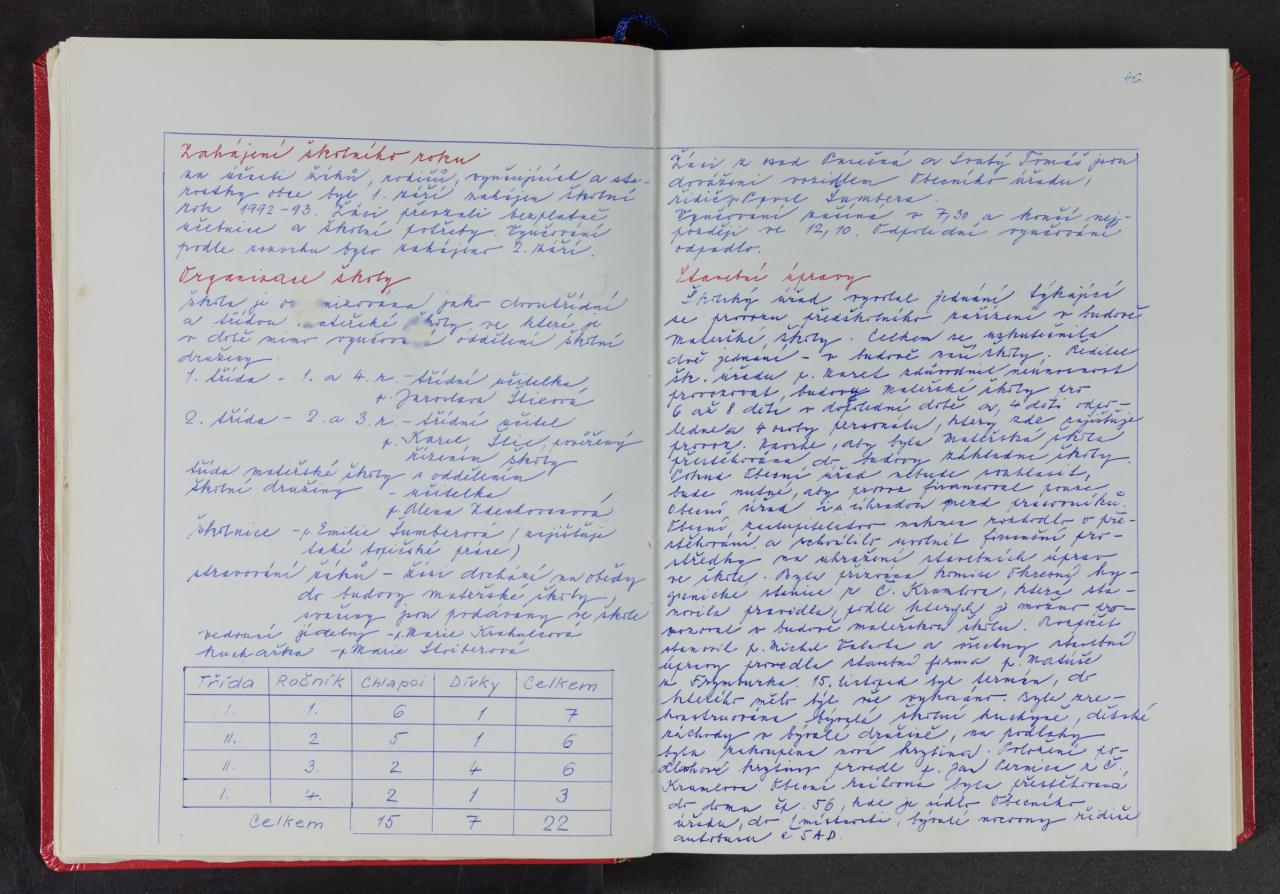 Zahájení školního roku
za účasti žáků, rodičů, vyučujících a sta-
rostky obce byl 1. září zahájen školní
rok 1992-93. Žáci převzali bezplatně
učebnice a školní potřeby. Vyučování
podle rozvrhu bylo zahájeno 2. září.
Organizace školy
Škola je or nizována jako dvoutřídní
a třídou mateřské školy, ve které je
v době mimo vyučová oddělení školní
družiny.
1. třída - 1. a 4. r. - třídní učitelka,
p. Jaroslava
2. třída - 2. a 3. r. - třídní učitel
p. Karel pověřený
řízením školy
třída mateřské školy s oddělením
školní družiny - učitelka
p. Alena
školnice - p. Emilie Šumberová (zajišťuje
také topičské práce)
stravování žáků - žáci dochází na obědy
do budovy mateřské školy,
svačiny jsou podávány ve škole
vedoucí jídelny - p. Marie
kuchařka - p. Marie Stoiberová
Třída Ročník Chlapci Dívky Celkem
I. 1. 6 1 7
II. 2. 5 1 6
II. 3. 2 4 6
I. 4. 2 1 3
Celkem 15 7 22
46
Žáci z osad Pasečná a Svatý Tomáš jsou
dováženi vozidlem Obecního úřadu,
řidič p. Pavel Šumbera.
Vyučování začíná v 7,30 a končí nej-
později ve 12,10. Odpolední vyučování
odpadlo.
Stavební úpravy
Školský úřad vyvolal jednání týkající
se provozu předškolního zařízení v budově
mateřské školy. Celkem se uskutečnila
dvě jednání - v budově naší školy. Ředitel
šk. úřadu p. Mareš zdůvodnil neúnosnost
provozovat budovy mateřské školy pro
6 až 8 dětí v dopolední době a 4 děti odpo-
ledne a 4 osoby personálu, který zde zajišťuje
provoz. Navrhl, aby byla mateřská škola
přestěhována do budovy základní školy.
Pokud Obecní úřad nebude souhlasit,
bude nutné, aby provoz financoval pouze
Obecní úřad i s úhradou mezd pracovníků.
Obecní zastupitelstvo nakonec rozhodlo o pře-
stěhování a schválilo uvolnit finanční pro-
středky na uhrazení stavebních úprav
ve škole. Byla přizvána komise Okresní hy-
gienické stanice z Č. Krumlova, která sta-
novila pravidla, podle kterých je možno pro-
vozovat v budově mateřskou školu. Rozpočet
stanovil p. Michal a všechny stavební
úpravy provedla stavební firma p. Matúše
z Frymburka. 15. listopad byl termín, do
kterého mělo být vše vykonáno. Byla zre-
konstruována bývalá školní kuchyně, dětské
záchody v bývalé družině, na podlahy
byla zakoupena nová krytina. Položení po-
dlahové krytiny provedl p. Jan Černica z Č.
Krumlova. Obecní knihovna byla přestěhována
do domu čp. 56, kde je sídlo Obecního
úřadu, do místnosti, bývalé nocovny řidiče
autobusu ČSAD.